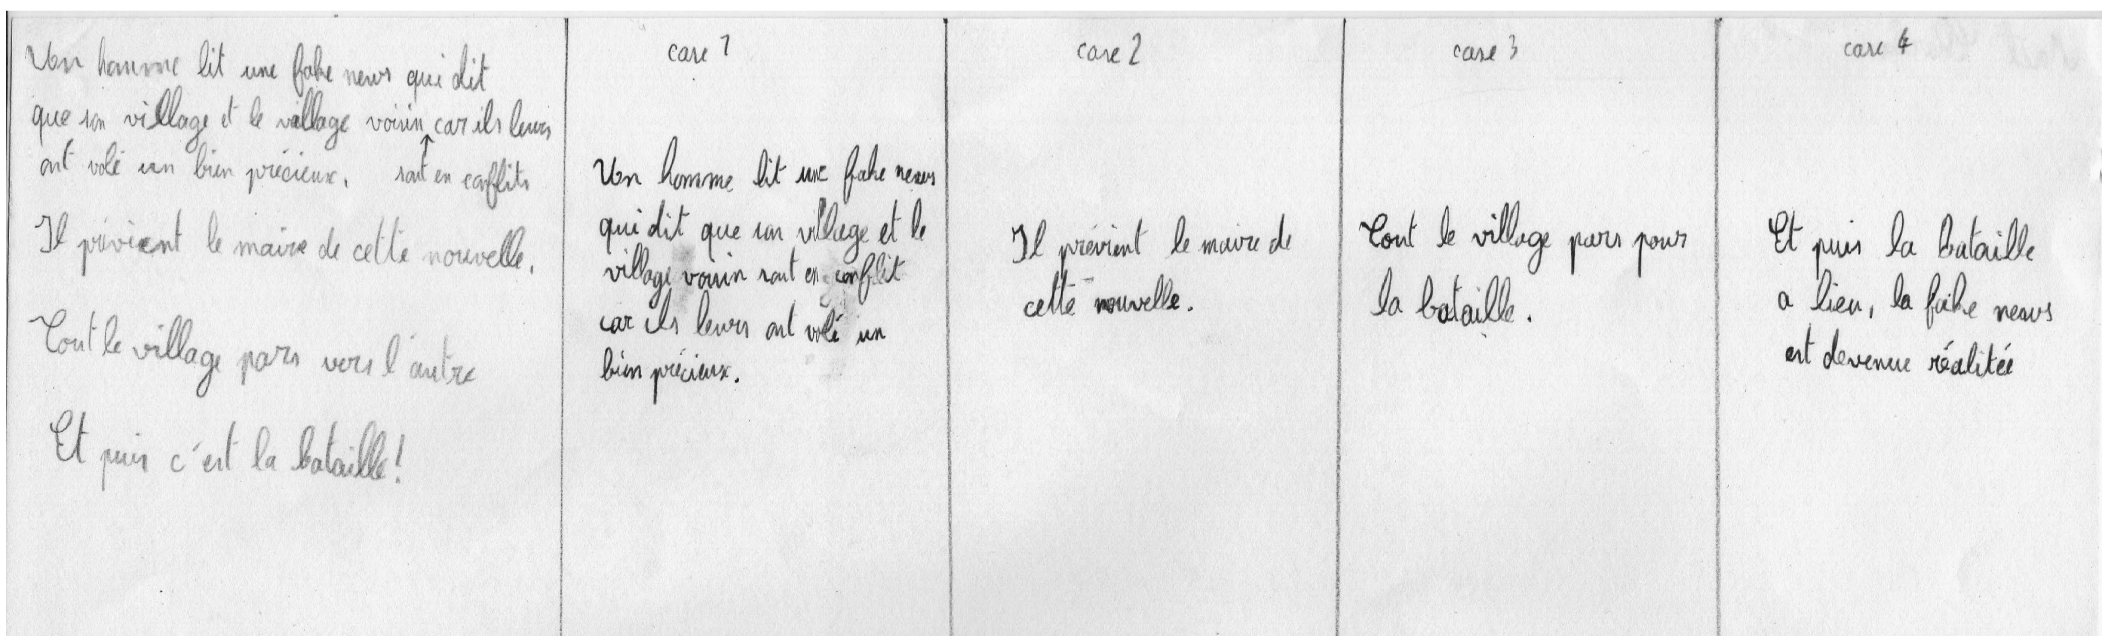 Un homme lit une fake news qui dit
que son village et le village voisin car ils leurs
ont volé un bien précieux. sont en conflits
Il prévient le maire de cette nouvelle.
Tout le village pars vers l'autre
Et puis c'est la bataille!
case 1
Un homme lit une fake news
qui dit que son village et le
village voisin sont en conflit
car ils leurs ont volé un
bien précieux.
case 2
Il prévient le maire de
cette nouvelle.
case 3
Tout le village pars pour
la bataille.
case 4
Et puis la bataille
a lieu, la fake news
est devenue réalitée